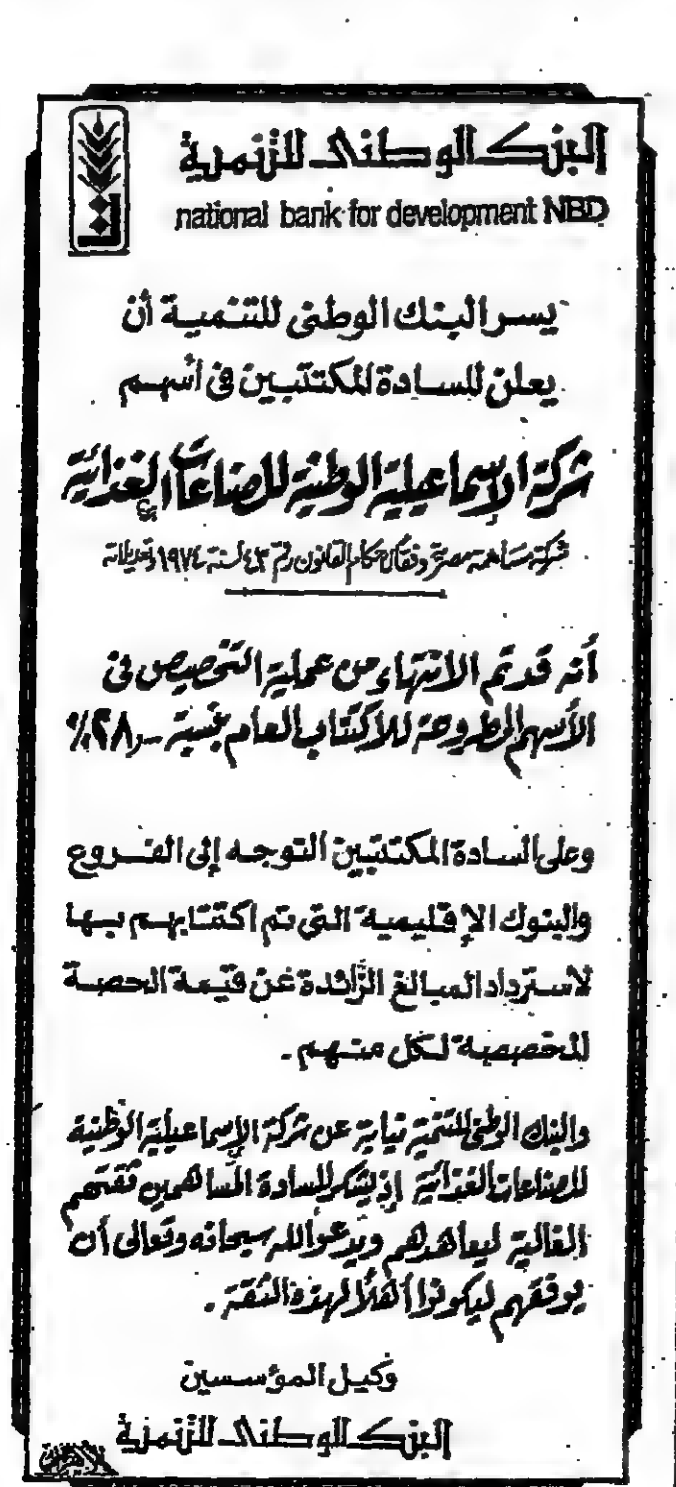 البنك الوطنى للتنمية
national bank for development NBD
يسر البنك الوطنى للتنمية أن
يعلن للسادة المكتتبين فى أسهم
شركة الإسماعيلية الوطنية للصناعات الغذائية
شركة مساهمة مصرية وفقاً لأحكام القانون رقم ٤٣ لسنة ١٩٧٤ وتعديلاته
أنه قد تم الانتهاء من عملية التخصيص فى
الأسهم المطروحة للاكتتاب العام بنسبة ٢٨٫-٪
وعلى السادة المكتتبين التوجه إلى الفروع
والبنوك الإقليمية التى تم اكتتابهم بها
لاسترداد المبالغ الزائدة عن قيمة الحصة
المخصصة لكل منهم .
والبنك الوطنى للتنمية نيابة عن شركة الإسماعيلية الوطنية
للصناعات الغذائية إذ يشكر للسادة المساهمين ثقتهم
الغالية ليعاهدهم ويدعو الله سبحانه وتعالى أن
يوفقهم ليكونوا أهلاً لهذه الثقة .
وكيل المؤسسين
البنك الوطنى للتنمية